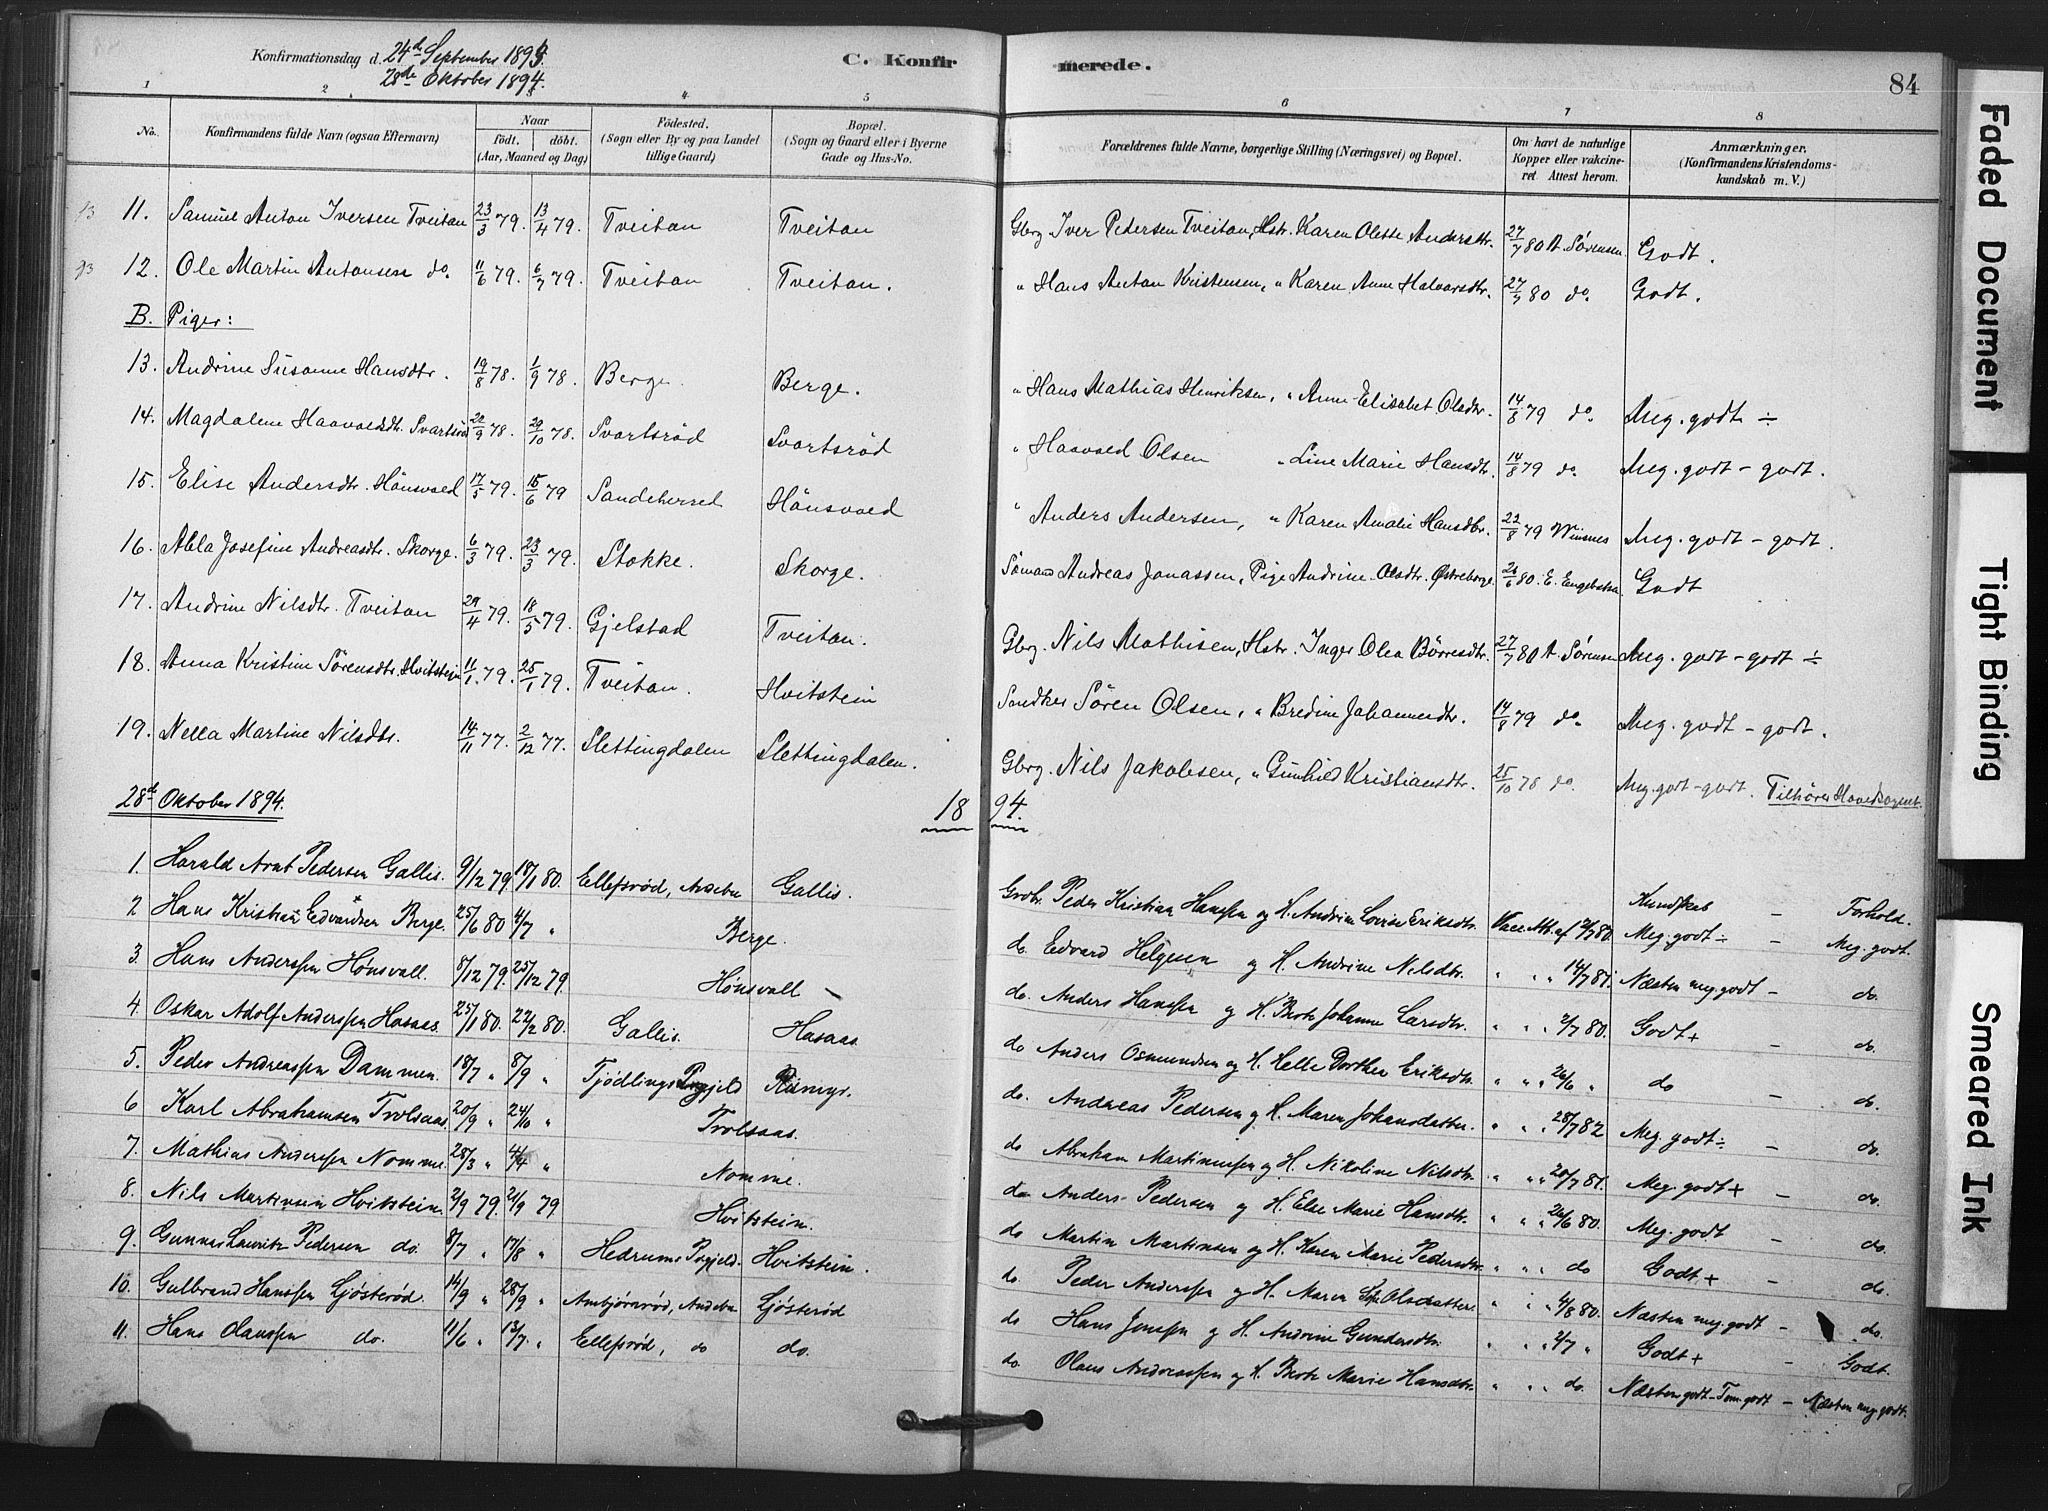 Konfirmationsdag d. 24de September 1893.
28de Oktober 1894.
C. Konfirmerede.
84
1 2 3 4 5 6 7 8
No. Konfirmandens fulde Navn (ogsaa Efternavn) Naar født. døbt. (Aar, Maaned og Dag) Fødested. (Sogn eller By og paa Landet tillige Gaard) Bopæl. (Sogn og Gaard eller i Byerne Gade og Hus-No. Forældrenes fulde Navne, borgerlige Stilling (Næringsvei) og Bopæl. Om havt de naturlige Kopper eller vakcineret Attest herom. Anmærkninger. (Konfirmandens Kristendomskundskab m. V.)
11. Samuel Anton Iversen Tveitan 23/3 79. 13/4 79. Tveitan Tveitan Gbrg. Iver Pedersen Tveitan, Hstr. Karen Olette Andersdtr. 27/7 80 A. Sørensen Godt.
12. Ole Martin Antonsen do. 11/6 79. 6/7 79. Tveitan Tveitan. " Hans Anton Kristensen, " Karen Anne Halvorsdtr. 27/7 80 do. Godt.
B. Piger:
13. Andrine Susanne Hansdtr. 19/8 78. 1/9 78. Berge. Berge. " Hans Mathias Henriksen, " Anne Elisabet Olsdtr. 14/8 79 do. Meg. godt ÷
14. Magdalene Haavoldsdtr. Svartsrød 22/9 78. 20/10 78. Svartsrød Svartsrød " Haavold Olsen " Line Marie Hansdtr. 14/8 79 do. Meg. godt - godt.
15. Elise Andersdtr. Hönsvold 17/5 79. 15/6 79 Sandeherred Hönsvold " Anders Andersen, " Karen Amalie Hansdtr. 22/8 79 Winsnes Meg. godt - godt.
16. Alela Josefine Andreasdtr. Skorge. 6/3 79. 23/3 79. Stokke. Skorge. Sömand Andreas Jonassen, Pige Andrine Olsdtr. Østreborge 26/6 80. E. Engebretsen Godt
17. Andrine Nilsdtr. Tveitan 29/4 79. 18/5 79. Gjelstad Tveitan. Gbrg. Nils Mathisen, Hstr. Inger Olea Börresdtr. 27/7 80 A. Sørensen Meg. godt - godt ÷
18. Anna Kristine Sörensdtr. Hvitstein 11/1 79. 25/1 79. Tveitan. Hvitstein Sören Olsen, " Bredine Johannesdtr. 14/8 79 do. Meg. godt - godt.
19. Nella Martine Nilsdtr. 14/11 77. 2/12 77. Slettingdalen Slettingdalen. Gbrg. Nils Jakobsen, " Gunhild Kristiansdtr. 25/10 78 do. Meg. godt - godt. Tilhører Hovedsognet.
28de Oktober 1894. 18 94.
Kundskab - Forhold.
1. Harald Arnt Pedersen Gallis. 9/12 79. 18/1 80. Ellefsrød, Andebu Gallis. Grdbr. Peder Kristian Hanssen og H. Andrine Lovise Eriksdtr. Vacc. Att. af 12/7 80. Meg. godt ÷ - Meg. godt.
2 Hans Kristian Edvardsen Berge. 25/6 80 4/7 " Berge. do. Edvard Helgesen og H. Andrine Nilsdtr. " " " 14/7 81. Næsten meg. godt - do.
3. Hans Anderssen Hønsvall. 8/12 79. 25/12 79. Hønsvall - do. Anders Hanssen og H. Berte Johanne Larsdtr. " " " 2/7 80. Godt + - do.
4. Oskar Adolf Anderssen Hasaas. 25/1 80. 22/2 80. Gallis. Hasaas. do Anders Osmundsen og H. Helle Dorthea Eriksdtr. " " " 26/6 " do - do.
5. Peder Andreassen Dammen. 18/7 " 8/9 " Tjødlings Prgjeld Rismyr. do. Andreas Pedersen og H. Maren Johansdatter. " " " 28/7 82 Meg. godt ÷ - do.
6 Karl Abrahamsen Trolsaas. 20/9 " 24/10 " Trolsaas. do Abraham Martinussen og H. Nikoline Nilsdtr. " " " 20/7 81. Meg. godt + - do.
7. Mathias Anderssen Nomme. 28/3 " 4/4 " Nomme. do Anders Pedersen og H. Else Marie Hansdtr. " " " 26/6 80. Meg. godt - do.
8. Nils Martinsen Hvitstein. 2/9 79. 21/9 79 Hvitstein. do Martin Martinsen og H. Karen Marie Pedersdtr. " " " do Godt + - do.
9. Gunnar Lauritz Pedersen do. 8/7 " 17/8 " Hedrums Prgjeld. Hvitstein. do. Peder Anderssen og H. Maren Olsdatter. " " " 4/8 80. Næsten meg. godt - do.
10. Gulbrand Hanssen Ljøsterød. 14/9 " 28/9 " Ambjørnrød, Andebu Ljøsterød do Hans Jenssen og H. Andrine Gundersdtr. " " " 2/7 " Godt + - Godt.
11. Hans Olaussen do. 11/6 " 13/7 " Ellefsrød, do do. do. Olaus Anderssen og H. Berte Marie Hansdtr. " " " do. Næsten godt - Tem. godt - Næsten meg. godt.
Faded Document
Tight Binding
Smeared Ink